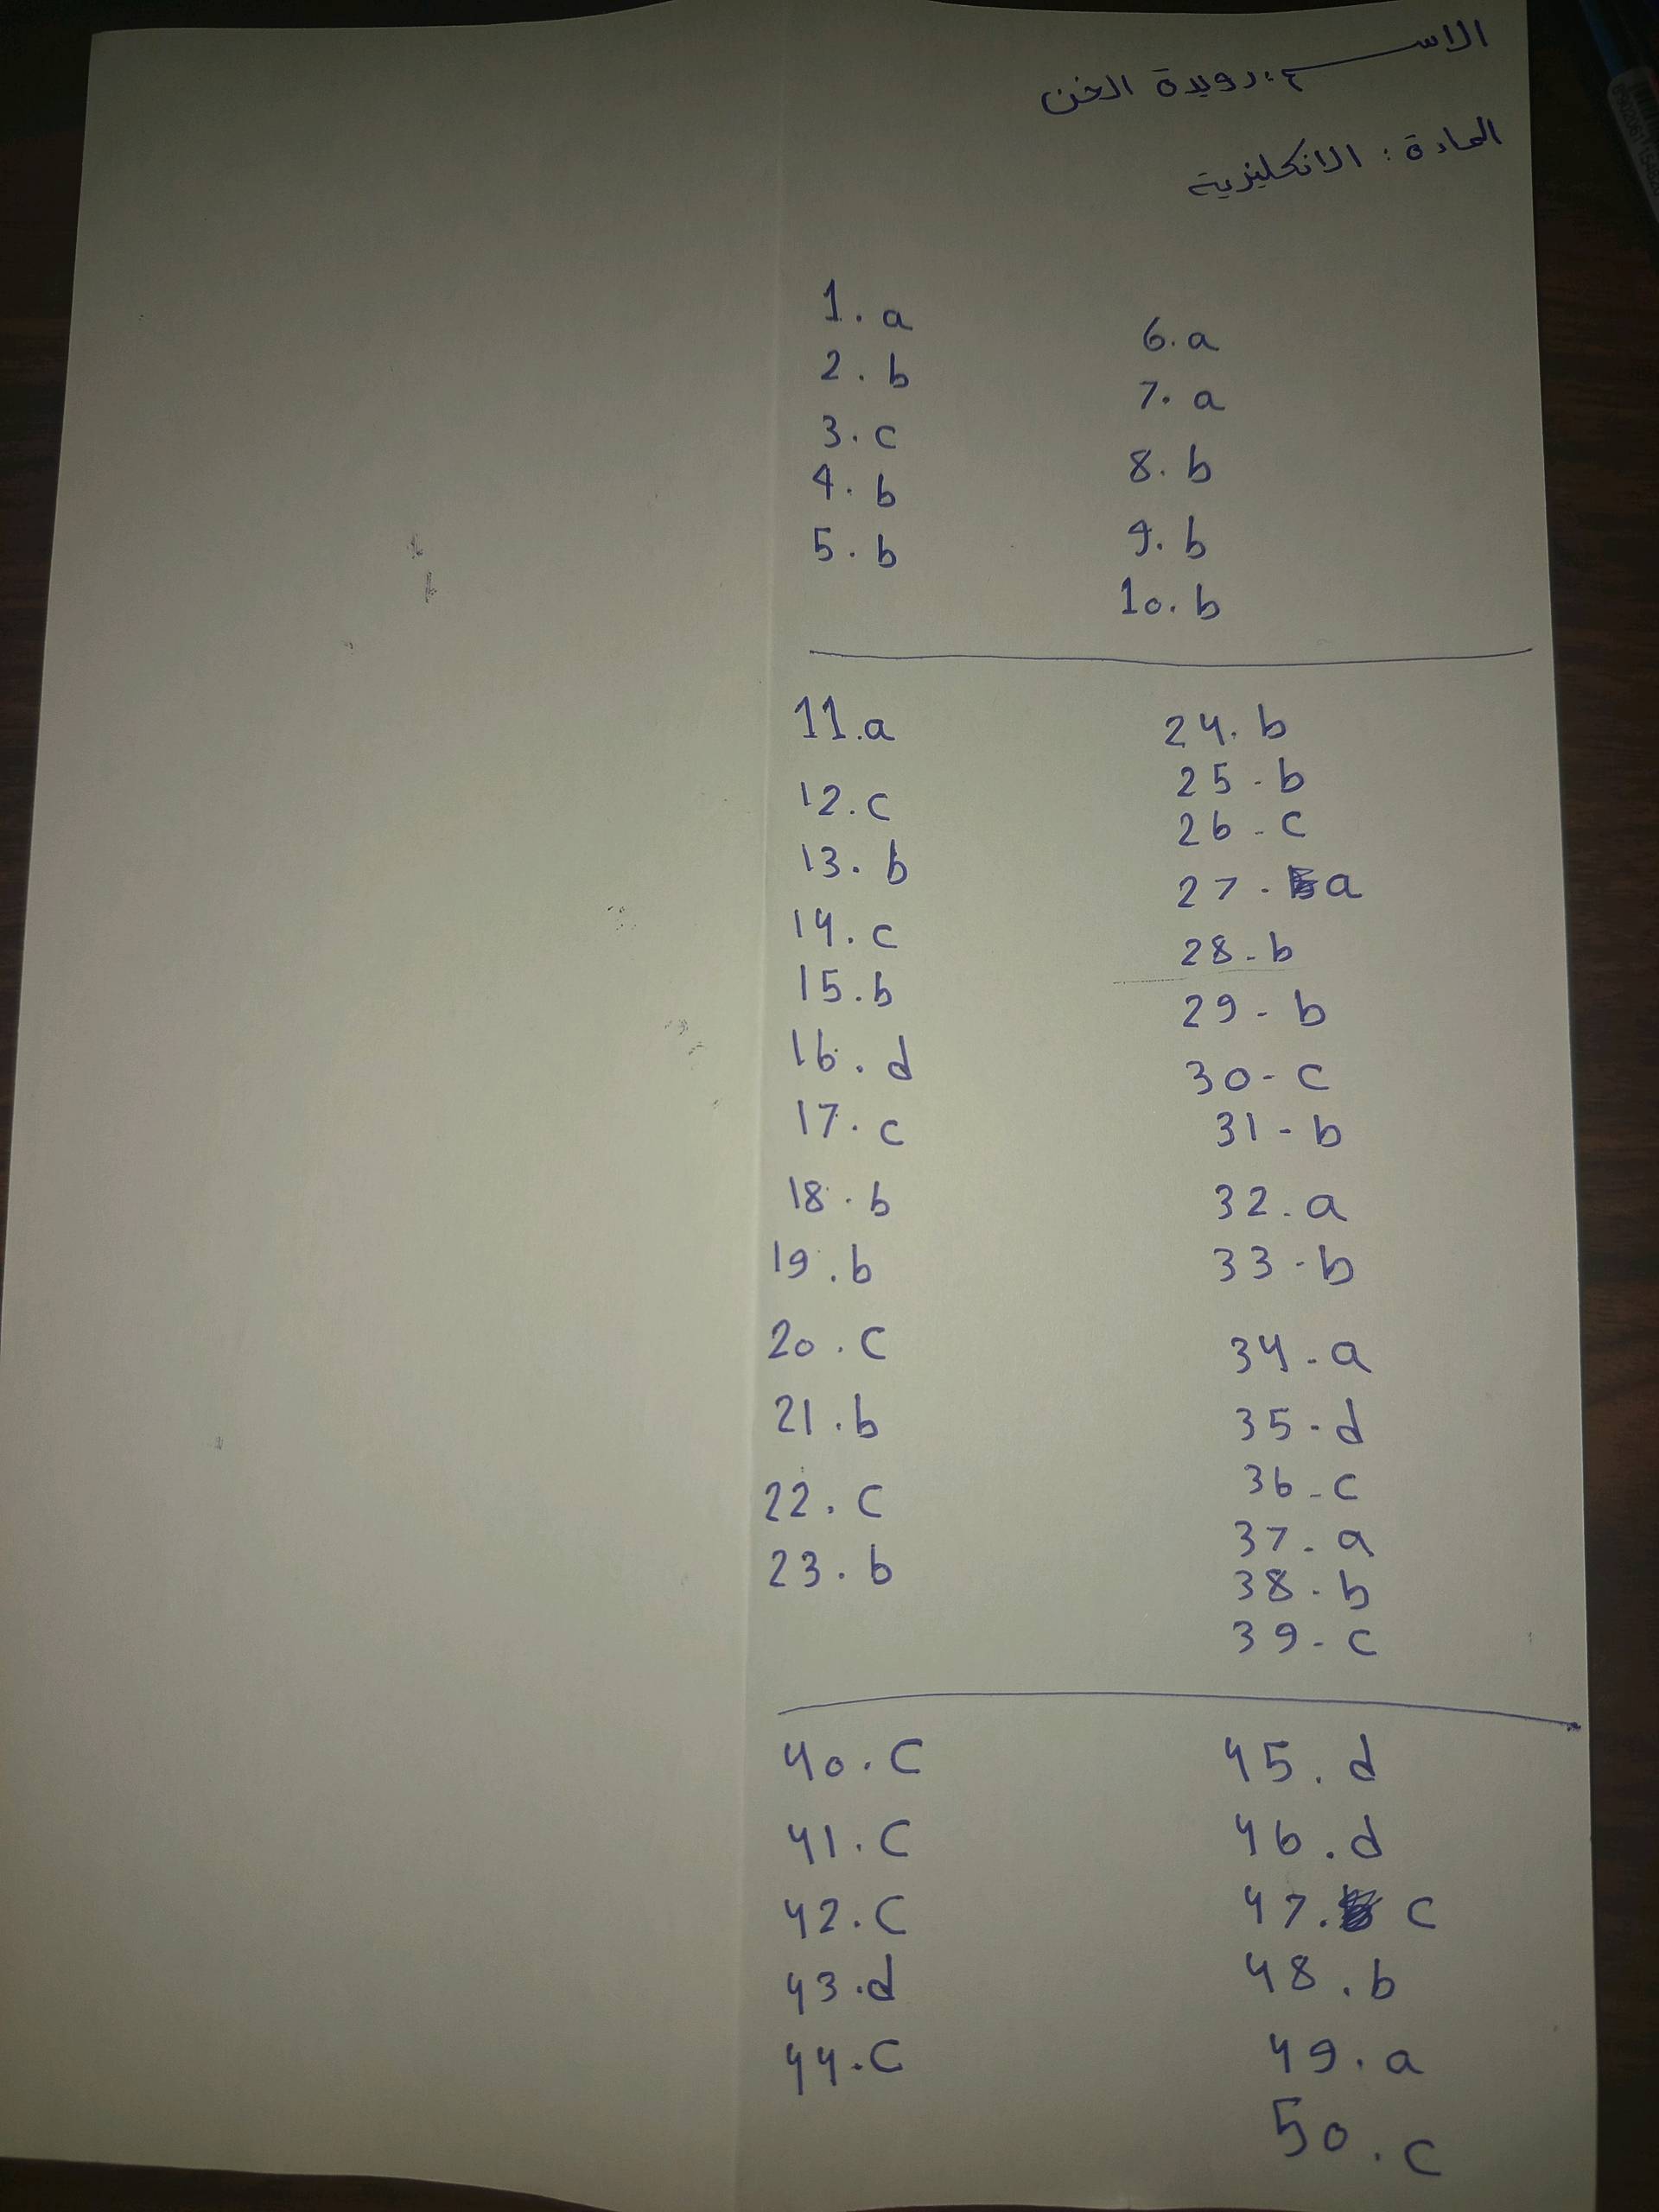 الاسم: رويدة الخن
المادة: الانكليزية
1. a
2. b
3. c
4. b
5. b
6. a
7. a
8. b
9. b
10. b
11. a
12. c
13. b
14. c
15. b
16. d
17. c
18. b
19. b
20. c
21. b
22. c
23. b
24. b
25 - b
26 - c
27 - a
28 - b
29 - b
30 - c
31 - b
32 - a
33 - b
34 - a
35 - d
36 - c
37 - a
38 - b
39 - c
40. c
41. c
42. c
43. d
44. c
45. d
46. d
47. c
48. b
49. a
50. c